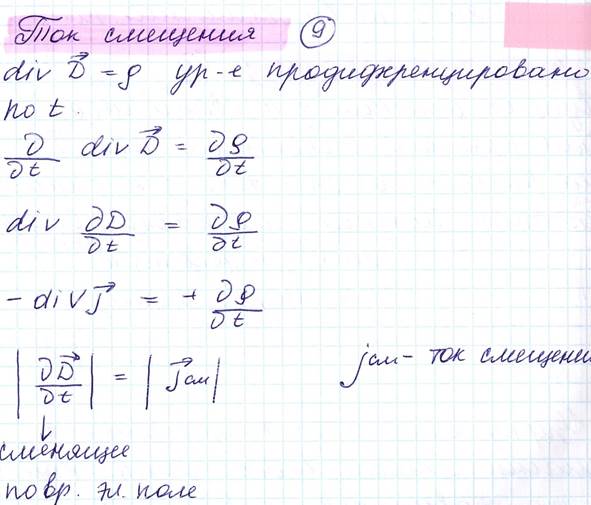 Ток смещения 9
div D⃗ = ρ ур-е продифференцировано
по t.
∂/∂t div D⃗ = ∂ρ/∂t
div ∂D/∂t = ∂ρ/∂t
- div j⃗ = + ∂ρ/∂t
|∂D⃗/∂t| = |j⃗см| jсм - ток смещени
↓
сменящее
по вр. эл. поле